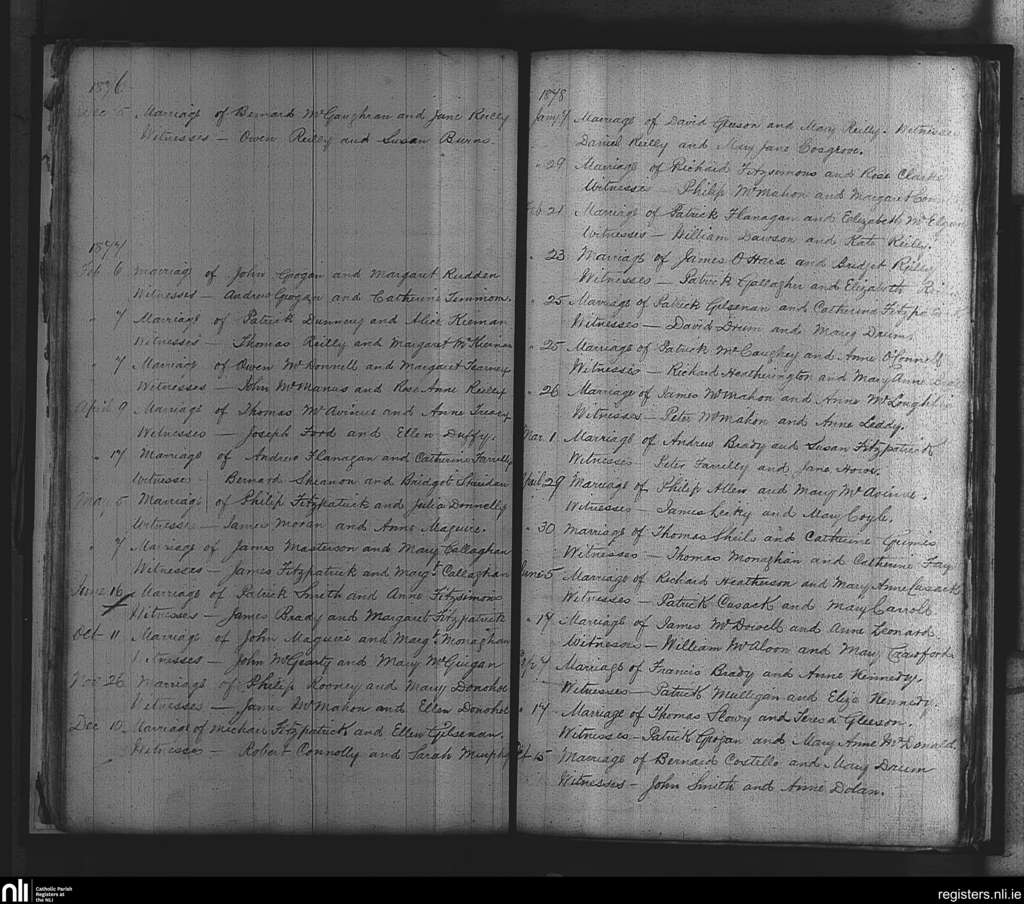 1876
Dec 5 Marriage of Bernard McGaughran and Jane Reilly
Witnesses – Owen Reilly and Susan Burns.
1877
Feb 6 Marriage of John Grogan and Margaret Rudden
Witnesses – Andrew Grogan and Catherine Timmons.
" 7 Marriage of Patrick Dunneny and Alice Kiernan
Witnesses – Thomas Reilly and Margaret McKiernan
" 7 Marriage of Owen McDonnell and Margaret
Witnesses – John McManus and Rose Anne Reilly
April 9 Marriage of Thomas McAvinue and Anne
Witnesses – Joseph Ford and Ellen Duffy.
" 17 Marriage of Andrew Flanagan and Catherine Farrelly
Witnesses – Bernard Sheanon and Bridget Sheridan
May 5 Marriage of Philip Fitzpatrick and Julia Donnelly
Witnesses – James Moran and Anne Maguire.
" 7 Marriage of James Masterson and Mary Callaghan
Witnesses – James Fitzpatrick and Margt Callaghan
June 16 Marriage of Patrick Smith and Anne Fitzsimons
Witnesses – James Brady and Margaret Fitzpatrick
Oct 11 Marriage of John Maguire and Margt Monaghan
Witnesses – John McGearty and Mary McGuigan
Nov 26 Marriage of Philip Rooney and Mary Donohoe
Witnesses – James McMahon and Ellen Donohoe
Dec 12 Marriage of Michael Fitzpatrick and Ellen Gilsenan.
Witnesses – Robert Connolly and Sarah Murphy
1878
Jany 7 Marriage of David Gleeson and Mary Reilly. Witnesses
Daniel Reilly and Mary Jane Cosgrove.
" 29 Marriage of Richard Fitzsimons and Rose Clarke
Witnesses – Philip McMahon and Margaret
Feb 21 Marriage of Patrick Flanagan and Elizabeth
Witnesses – William Dawson and Kate Reilly.
" 23 Marriage of James O'Hara and Bridget Reilly
Witnesses – Patrick Gallagher and Elizabeth
" 25 Marriage of Patrick Gilsenan and Catherine Fitzpatrick
Witnesses – David Drum and Mary Drum.
" 25 Marriage of Patrick McCaughey and Anne O'Connell
Witnesses – Richard Heatherington and Mary Anne
" 26 Marriage of James McMahon and Anne McLoughlin
Witnesses – Peter McMahon and Anne Leddy.
Mar 1. Marriage of Andrew Brady and Susan Fitzpatrick
Witnesses – Peter Farrelly and Jane
April 29 Marriage of Philip Allen and Mary McAvinue.
Witnesses – James Lecky and Mary Coyle.
" 30 Marriage of Thomas Sheils and Catherine
Witnesses – Thomas Monaghan and Catherine Fay.
June 5 Marriage of Richard Heatherson and Mary Anne Cusack
Witnesses – Patrick Cusack and Mary Carroll
" 17 Marriage of James McDowell and Anne Leonard.
Witnesses – William McAloon and Mary Crawford.
Marriage of Francis Brady and Anne Kennedy.
Witnesses – Patrick Mulligan and Eliza Kennedy.
" 17 Marriage of Thomas Slowy and Teresa Gleeson.
Witnesses – Patrick Grogan and Mary Anne McDonald.
15 Marriage of Bernard Costello and Mary Drum
Witnesses – John Smith and Anne Dolan.
nli Catholic Parish
Registers at
the NLI
registers.nli.ie